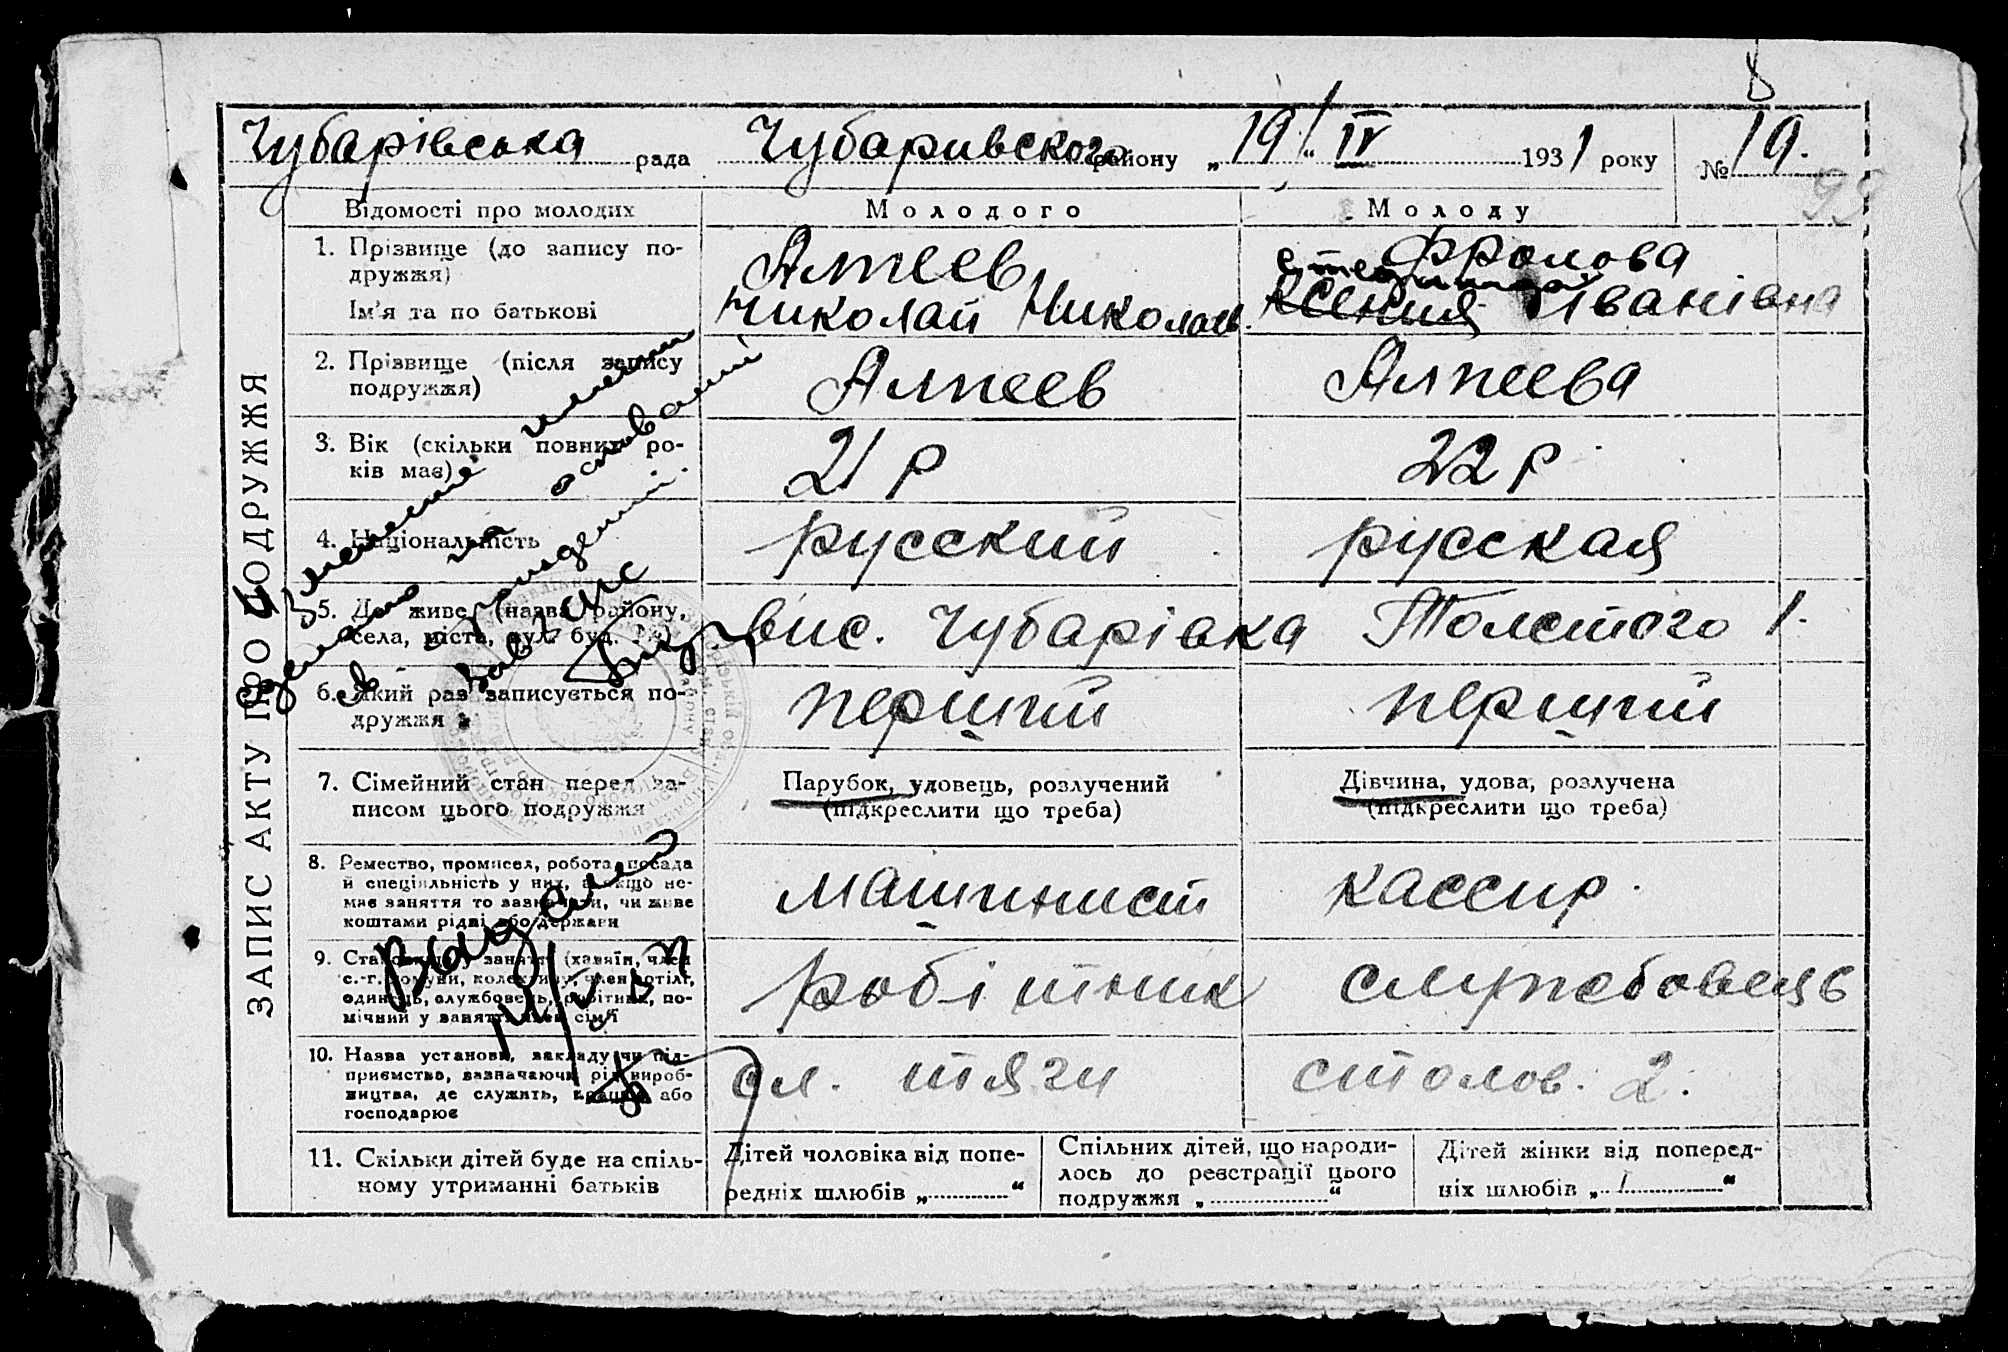 8
Чубарівська рада Чубаривского району „19“ IV 1931 року № 19.
99
Відомості про молодих Молодого Молоду
ЗАПИС АКТУ ПРО ПОДРУЖЖЯ
1. Прізвище (до запису по-
дружжя)
Алпеев Фролова
Ім'я та по батькові
Николай Николаев. Ксения Іванівна
2. Прізвище (після запису
подружжя)
Алпеев Алпеева
3. Вік (скільки повних ро-
ків має)
21 р 22 р.
4. Національність
русский русская
5. Де живе (назва району,
села, міста, вул. буд. №)
вис. Чубарівка Толстого 1.
6. Який раз записується по-
дружжя
перший перший
7. Сімейний стан перед за-
писом цього подружжя
Парубок, удовець, розлучений
(підкреслити що треба)
Дівчина, удова, розлучена
(підкреслити що треба)
8. Ремество, промисел, робота, посада
й спеціяльність у них, а якщо не-
має заняття то зазначити, чи живе
коштами рідні або держави
машинист кассир.
9. Становище у занятті (хазяїн, член
с.-г. комуни, колективу, член артілі,
одинець, службовець, робітник, по-
мічний у занятті член сім'ї
робітник служебовець
10. Назва установи, закладу чи під-
приємства, зазначаючи рід вироб-
ництва, де служить, працює або
господарює
сл. тяги столов. 2.
11. Скільки дітей буде на спіль-
ному утриманні батьків
Дітей чоловіка від попе-
редніх шлюбів „ “
Спільних дітей, що народи-
лось до реєстрації цього
подружжя „ “
Дітей жінки від поперед-
ніх шлюбів „ “